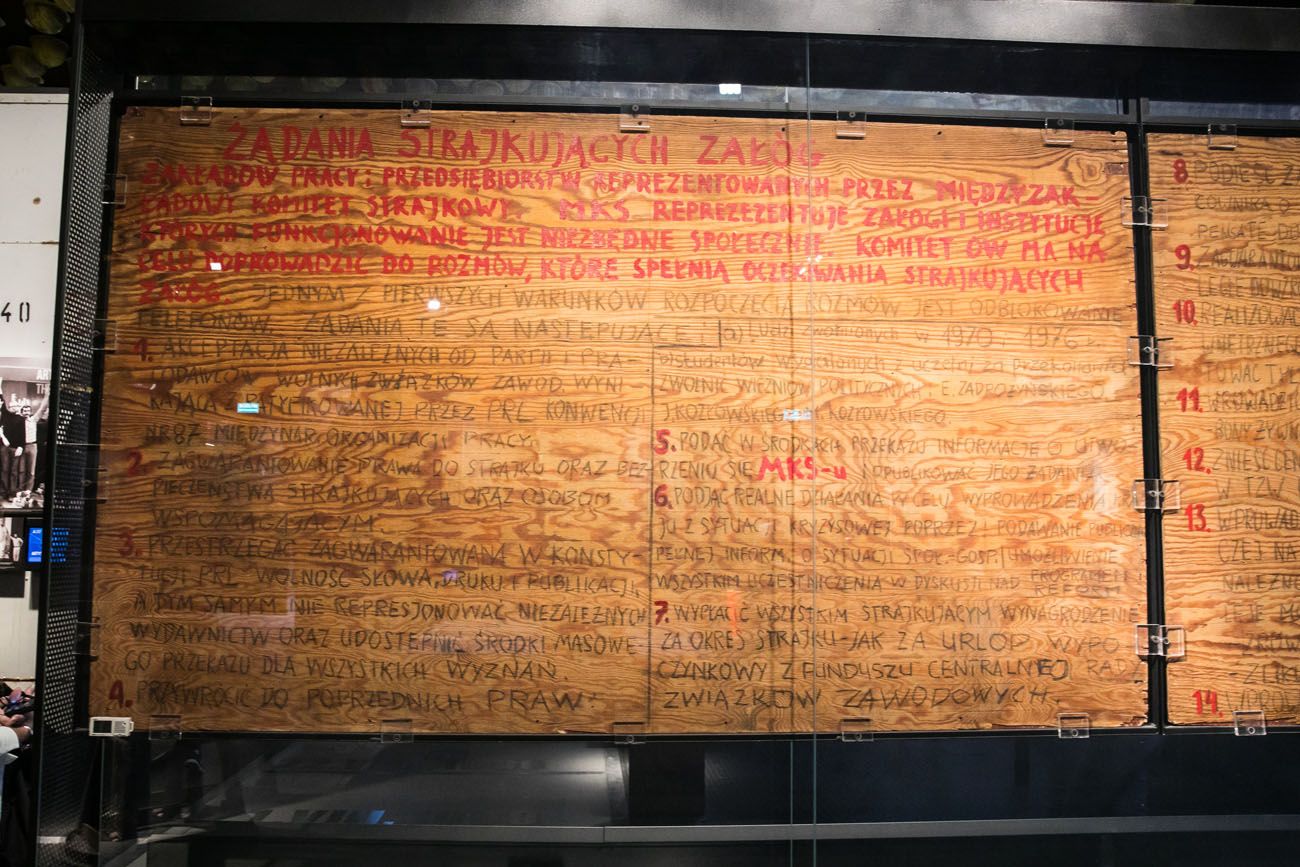 ŻĄDANIA STRAJKUJĄCYCH ZAŁÓG
ZAKŁADÓW PRACY I PRZEDSIĘBIORSTW REPREZENTOWANYCH PRZEZ MIĘDZYZAK-
ŁADOWY KOMITET STRAJKOWY. MKS REPREZEZENTUJE ZAŁOGI I INSTYTUCJE
KTÓRYCH FUNKCJONOWANIE JEST NIEZBĘDNE SPOŁECZNIE. KOMITET ÓW MA NA
CELU DOPROWADZIĆ DO ROZMÓW, KTÓRE SPEŁNIĄ OCZEKIWANIA STRAJKUJĄCYCH
ZAŁÓG. JEDNYM Z PIERWSZYCH WARUNKÓW ROZPOCZĘCIA ROZMÓW JEST ODBLOKOWANIE
TELEFONÓW. ŻĄDANIA TE SĄ NASTĘPUJĄCE:
1. AKCEPTACJA NIEZALEŻNYCH OD PARTII I PRA-
CODAWCÓW WOLNYCH ZWIĄZKÓW ZAWOD. WYNI
KAJĄCA Z RATYFIKOWANEJ PRZEZ PRL KONWENCJI
NR 87 MIĘDZYNAR. ORGANIZACJI PRACY.
2. ZAGWARANTOWANIE PRAWA DO STRAJKU ORAZ BEZ-
PIECZEŃSTWA STRAJKUJĄCYCH ORAZ OSOBOM
WSPOMAGAJĄCYM.
3. PRZESTRZEGAĆ ZAGWARANTOWANĄ W KONSTY-
TUCJI PRL WOLNOŚĆ SŁOWA, DRUKU I PUBLIKACJI,
A TYM SAMYM NIE REPRESJONOWAĆ NIEZALEŻNYCH
WYDAWNICTW ORAZ UDOSTĘPNIĆ ŚRODKI MASOWE-
GO PRZEKAZU DLA WSZYSTKICH WYZNAŃ.
4. PRZYWRÓCIĆ DO POPRZEDNICH PRAW:
a) Ludzi zwolnionych w 1970 i 1976
b) studentów wydalonych z uczelni za przekonania
ZWOLNIĆ WIĘŹNIÓW POLITYCZNYCH E. ZADROŻYŃSKIEGO
J KOZŁOWSKIEGO KOZŁOWSKIEGO
5. PODAĆ W ŚRODKACH PRZEKAZU INFORMACJE O UTWO-
RZENIU SIĘ MKS-u I OPUBLIKOWAĆ JEGO ŻĄDANIA
6. PODJĄĆ REALNE DZIAŁANIA W CELU WYPROWADZENIA KRA
JU Z SYTUACJI KRYZYSOWEJ POPRZEZ: PODAWANIE PUBLICZN
PEŁNEJ INFORM. O SYTUACJI SPOŁ.-GOSP. UMOŻLIWIENIE
WSZYSTKIM UCZESTNICZENIA W DYSKUSJI NAD PROGRAMEM
REFORM
7. WYPŁACIĆ WSZYSTKIM STRAJKUJĄCYM WYNAGRODZENIE
ZA OKRES STRAJKU-JAK ZA URLOP WYPO
CZYNKOWY Z FUNDUSZU CENTRALNEJ RADY
ZWIĄZKÓW ZAWODOWYCH.
8 PODNIEŚĆ Z
COWNIKA O
PENSATĘ DO
9. ZAGWARANTO
10. REALIZOWAĆ
WNĘTRZNEGO
TOWAĆ TYL
11.
BONY ŻYWN
12. ZNIEŚĆ CEN
W TZW
13 WPROWAD
CZEJ NA
NALEŻNO
14.
40